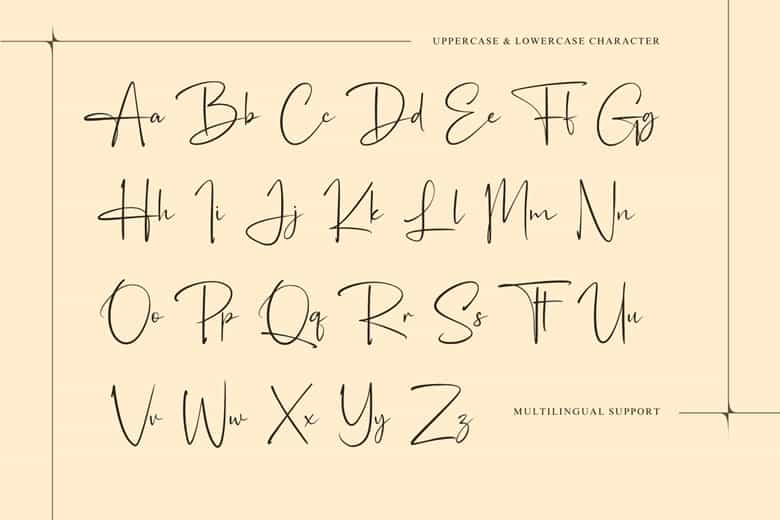 UPPERCASE & LOWERCASE CHARACTER
Aa Bb Cc Dd Ee Ff Gg
Hh Ii Jj Kk Ll Mm Nn
Oo Pp Qq Rr Ss Tt Uu
Vv Ww Xx Yy Zz
MULTILINGUAL SUPPORT